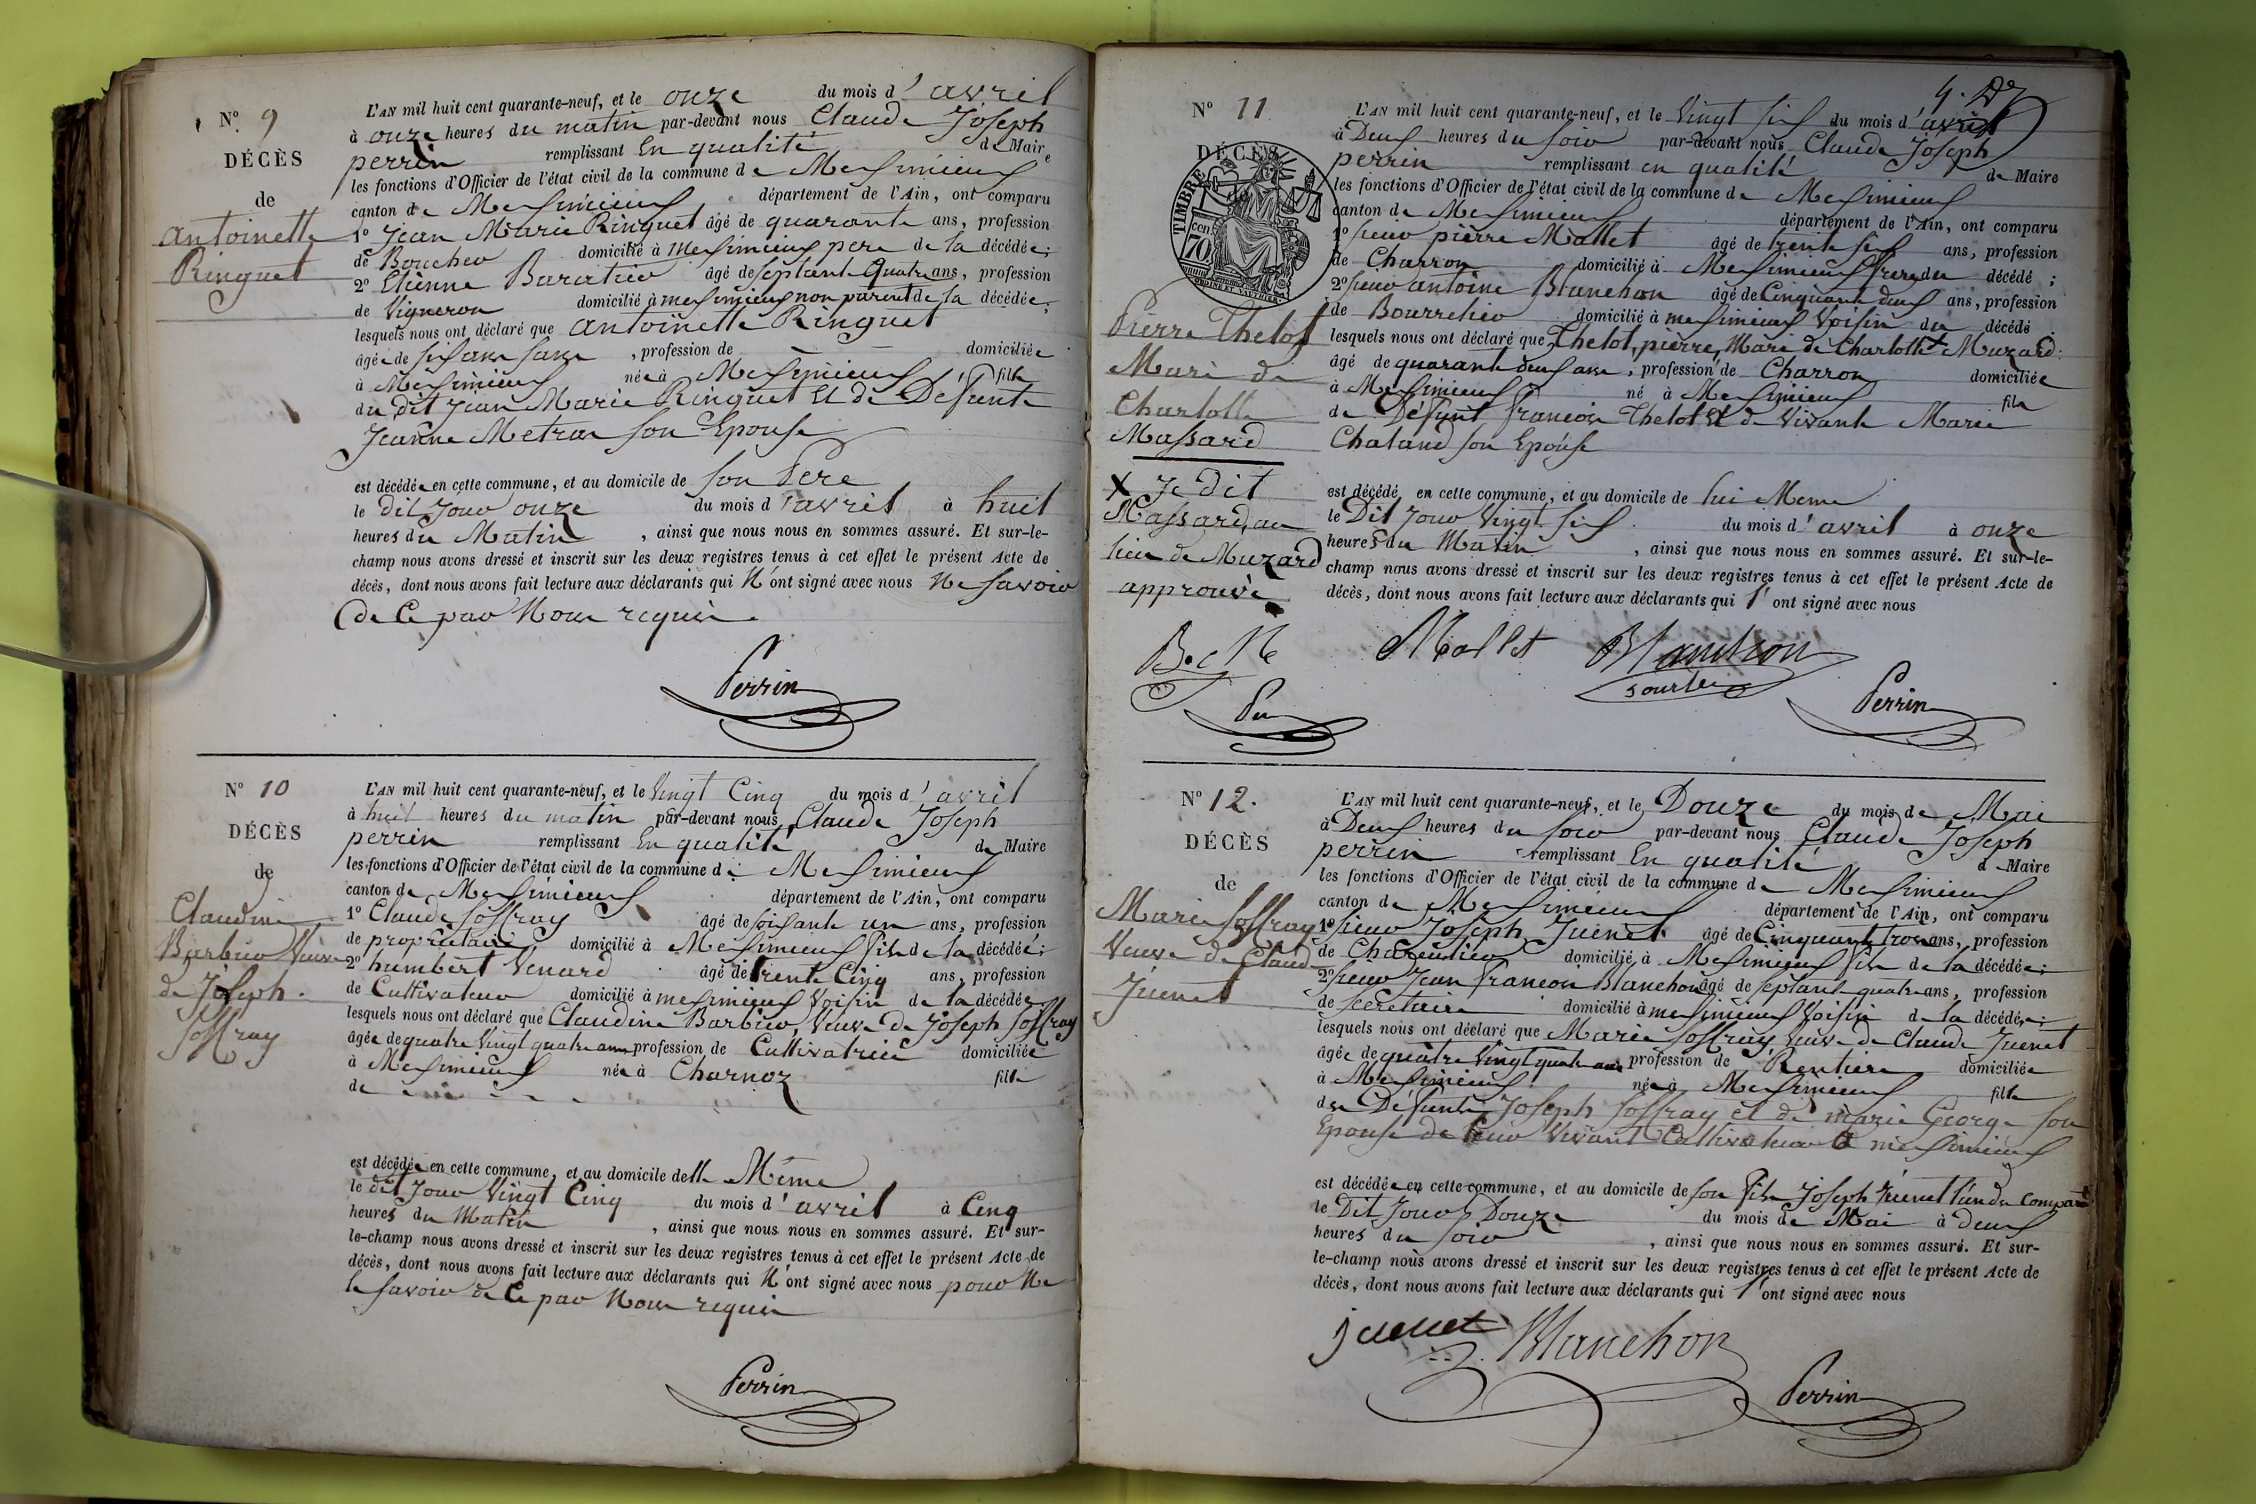 N° 9
DÉCÈS
de
antoinette
Ringuet
L'AN mil huit cent quarante-neuf, et le onze du mois d'avril
à onze heures du matin par-devant nous Claude Joseph
perrin remplissant En qualité de Maire
les fonctions d'Officier de l'état civil de la commune de Meximieux
canton de Meximieux département de l'Ain, ont comparu
1° Jean Marie Ringuet âgé de quarante ans, profession
de Boucher domicilié à meximieux pere de la décédée;
2° Etienne Baratier âgé de septante quatre ans, profession
de Vigneron domicilié à meximieux non parent de la décédée;
lesquels nous ont déclaré que antoinette Ringuet
âgée de six ans, profession de domiciliée
à Meximieux née à Meximieux fille
du dit Jean Marie Ringuet et de Défunte
Jeanne Metras son Epouse
est décédée en cette commune, et au domicile de son Pere
le dit jour onze du mois d'avril à huit
heures du Matin, ainsi que nous nous en sommes assuré. Et sur-le-
champ nous avons dressé et inscrit sur les deux registres tenus à cet effet le présent Acte de
décès, dont nous avons fait lecture aux déclarants qui N'ont signé avec nous Ne savoir
de Ce par Nous requis.
Perrin
N° 10
DÉCÈS
de
Claudine
Barbier Veuve
de Joseph
Joffray
L'AN mil huit cent quarante-neuf, et le Vingt Cinq du mois d'avril
à huit heures du matin par-devant nous Claude Joseph
perrin remplissant En qualité de Maire
les fonctions d'Officier de l'état civil de la commune de Meximieux
canton de Meximieux département de l'Ain, ont comparu
1° Claude Joffray âgé de soixante un ans, profession
de propriétaire domicilié à Meximieux fils de la décédée;
2° humbert Venard âgé de trente Cinq ans, profession
de Cultivateur domicilié à meximieux Voisin de la décédée
lesquels nous ont déclaré que Claudine Barbier, Veuve de Joseph Joffray
âgée de quatre Vingt quatre ans profession de Cultivatrice domiciliée
à Meximieux née à Charnoz fille
de
est décédée en cette commune, et au domicile delle Même
le dit jour Vingt Cinq du mois d'avril à Cinq
heures du Matin, ainsi que nous nous en sommes assuré. Et sur-
le-champ nous avons dressé et inscrit sur les deux registres tenus à cet effet le présent Acte de
décès, dont nous avons fait lecture aux déclarants qui N'ont signé avec nous pour Ne
le savoir de Ce par Nous requis
Perrin
N° 11
DÉCÈS
TIMBRE
70 cen
Pierre Thelot
Mari de
Charlotte
Massard
X Je dit
Massard, au
lieu de Muzard
approuvé
L'AN mil huit cent quarante-neuf, et le Vingt six du mois d'avril
à Deux heures du soir par-devant nous Claude Joseph
perrin remplissant en qualité de Maire
les fonctions d'Officier de l'état civil de la commune de Meximieux
canton de Meximieux département de l'Ain, ont comparu
1° sieur pierre Mallet âgé de trente six ans, profession
de Charron domicilié à Meximieux frere du décédé;
2° sieur antoine Blanchon âgé de Cinquante deux ans, profession
de Bourrelier domicilié à meximieux Voisin du décédé
lesquels nous ont déclaré que Thelot, pierre, Mari de Charlotte X Muzard;
âgé de quarante deux ans, profession de Charron domiciliée
à Meximieux né à Meximieux fils
de Défunt françois Thelot et de Vivante Marie
Chaland son Epouse
est décédé en cette commune, et au domicile de lui Meme
le Dit jour Vingt six du mois d'avril à onze
heures du Matin, ainsi que nous nous en sommes assuré. Et sur-le-
champ nous avons dressé et inscrit sur les deux registres tenus à cet effet le présent Acte de
décès, dont nous avons fait lecture aux déclarants qui l'ont signé avec nous
Mallet Blanchon
Perrin
N° 12.
DÉCÈS
de
Marie Joffray
Veuve de Claude
Juenet
L'AN mil huit cent quarante-neuf, et le Douze du mois de Mai
à Deux heures du soir par-devant nous Claude Joseph
perrin remplissant En qualité d Maire
les fonctions d'Officier de l'état civil de la commune de Meximieux
canton de Meximieux département de l'Ain, ont comparu
1° sieur Joseph Juenet âgé de Cinquante trois ans, profession
de Charcutier domicilié à Meximieux fils de la décédée;
2° sieur Jean françois Blanchon âgé de septante quatre ans, profession
de secretaire domicilié à meximieux Voisin de la décédée;
lesquels nous ont déclaré que Marie Joffray Veuve de Claude Juenet
âgée de quatre Vingt quatre ans profession de Rentiere domiciliée
à Meximieux née à Meximieux fille
de Défunts Joseph Joffray et de marie George son
Epouse de leur Vivant Cultivateur a meximieux
est décédée en cette commune, et au domicile de son fils Joseph Juenet l'un du Comparu
le Dit Jour Douze du mois de Mai à deux
heures du soir, ainsi que nous nous en sommes assuré. Et sur-
le-champ nous avons dressé et inscrit sur les deux registres tenus à cet effet le présent Acte de
décès, dont nous avons fait lecture aux déclarants qui l'ont signé avec nous
juenet Blanchon
Perrin